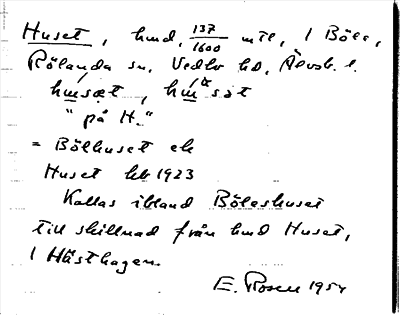 Huset, hmd, 137/1600 mtl, 1 Böle,
Rölanda sn, Vedbo hd, Älvsb. l.
husæt, husæt
"på H."
= Bölhuset ek
Huset hbk 1923
Kallas ibland Böleshuset
till skillnad från hmd Huset,
1 Hästhagen
E. Rosen 1954